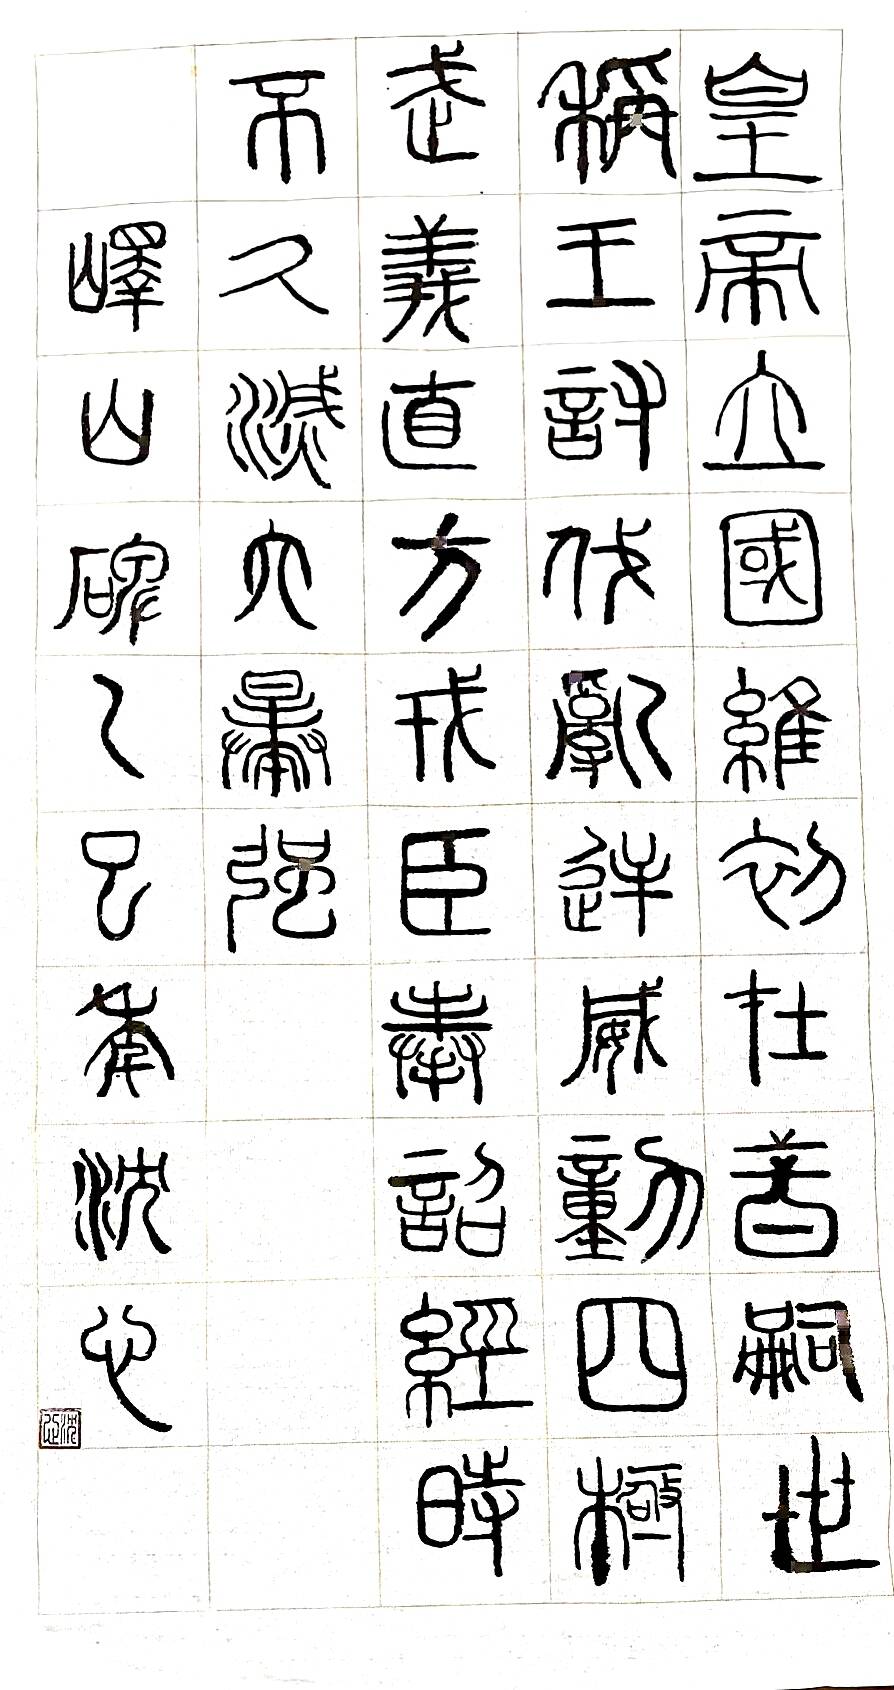 皇帝立國維初在昔嗣世
稱王討伐亂逆威動四極
武義直方戎臣奉詔經時
不久滅六暴強
嶧山碑乙巳年沈心